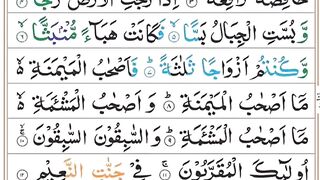 خَافِضَةٌ رَّافِعَةٌ ۙ‏ ﴿۳﴾ اِذَا رُجَّتِ الۡاَرۡضُ رَجًّا ۙ‏ ﴿۴﴾
وَّ بُسَّتِ الۡجِبَالُ بَسًّا ۙ‏ ﴿۵﴾ فَكَانَتۡ هَبَآءً مُّنۡۢبَثًّا ۙ‏ ﴿۶﴾
وَّ كُنۡتُمۡ اَزۡوَاجًا ثَلٰثَةً ؕ‏ ﴿۷﴾ فَاَصۡحٰبُ الۡمَيۡمَنَةِ ۬ۙ
مَاۤ اَصۡحٰبُ الۡمَيۡمَنَةِ ؕ‏ ﴿۸﴾ وَ اَصۡحٰبُ الۡمَشۡـَٔمَةِ ۬ۙ
مَاۤ اَصۡحٰبُ الۡمَشۡـَٔمَةِ ؕ‏ ﴿۹﴾ وَ السّٰبِقُوۡنَ السّٰبِقُوۡنَ ۚۙ‏ ﴿۱۰﴾
اُولٰٓئِكَ الۡمُقَرَّبُوۡنَ ۚ‏ ﴿۱۱﴾ فِىۡ جَنّٰتِ النَّعِيۡمِ ﴿۱۲﴾